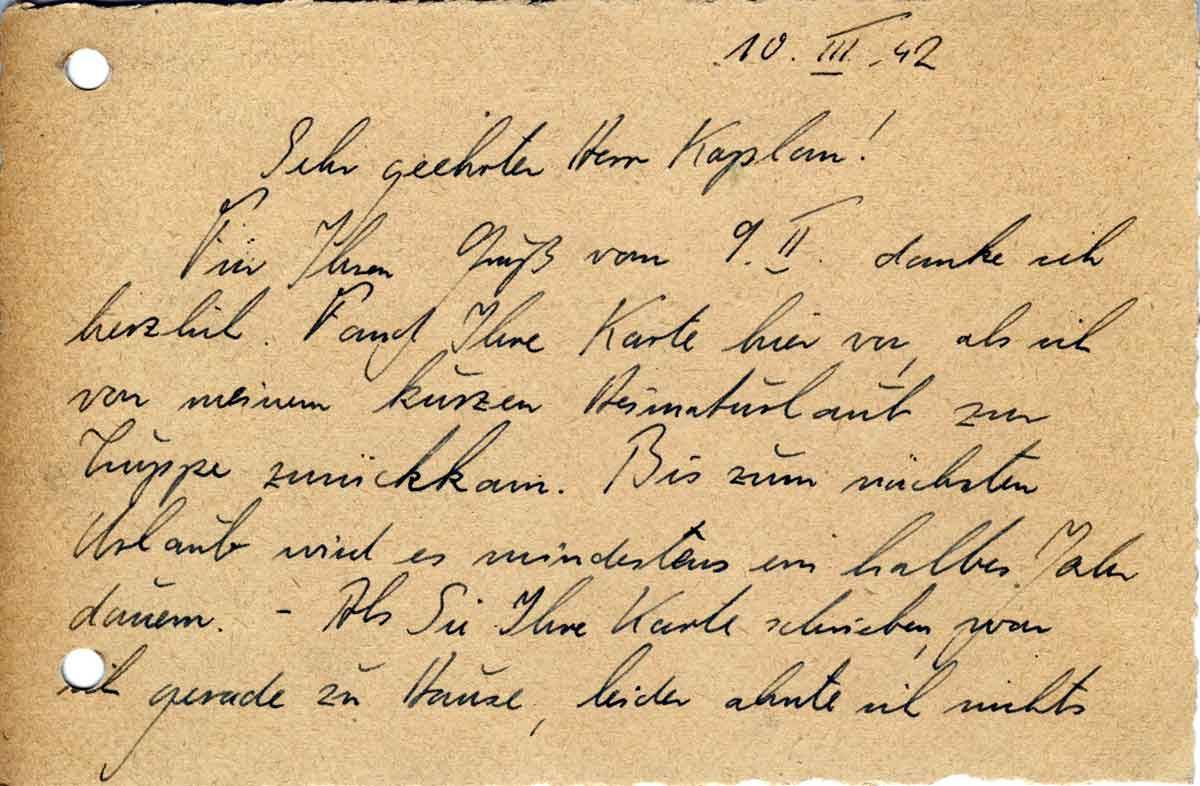 10. III. 42
Sehr geehrter Herr Kaplan!
Für Ihren Gruß vom 9. II. danke ich
herzlich. Fand Ihre Karte hier vor, als ich
von meinem kurzen Heimaturlaub zur
Truppe zurückkam. Bis zum nächsten
Urlaub wird es mindestens ein halbes Jahr
dauern. - Als Sie Ihre Karte schrieben, war
ich gerade zu Hause, leider ahnte ich nichts